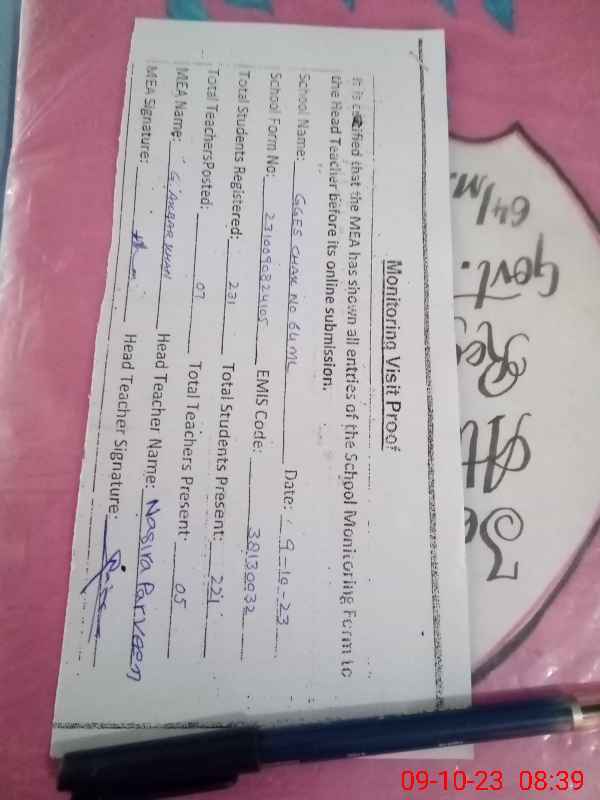 Monitoring Visit Proof
It is certified that the MEA has shown all entries of the School Monitoring Form to
the Head Teacher before its online submission.
School Name: GGES CHAK No 64 ML Date: 9-10-23
School Form No: 231009082405 EMIS Code: 38130032
Total Students Registered: 231 Total Students Present: 221
Total TeachersPosted: 07 Total Teachers Present: 05
MEA Name: Head Teacher Name: Nasira Parveen
MEA Signature: Head Teacher Signature:
64/M
Govt.
09-10-23 08:39